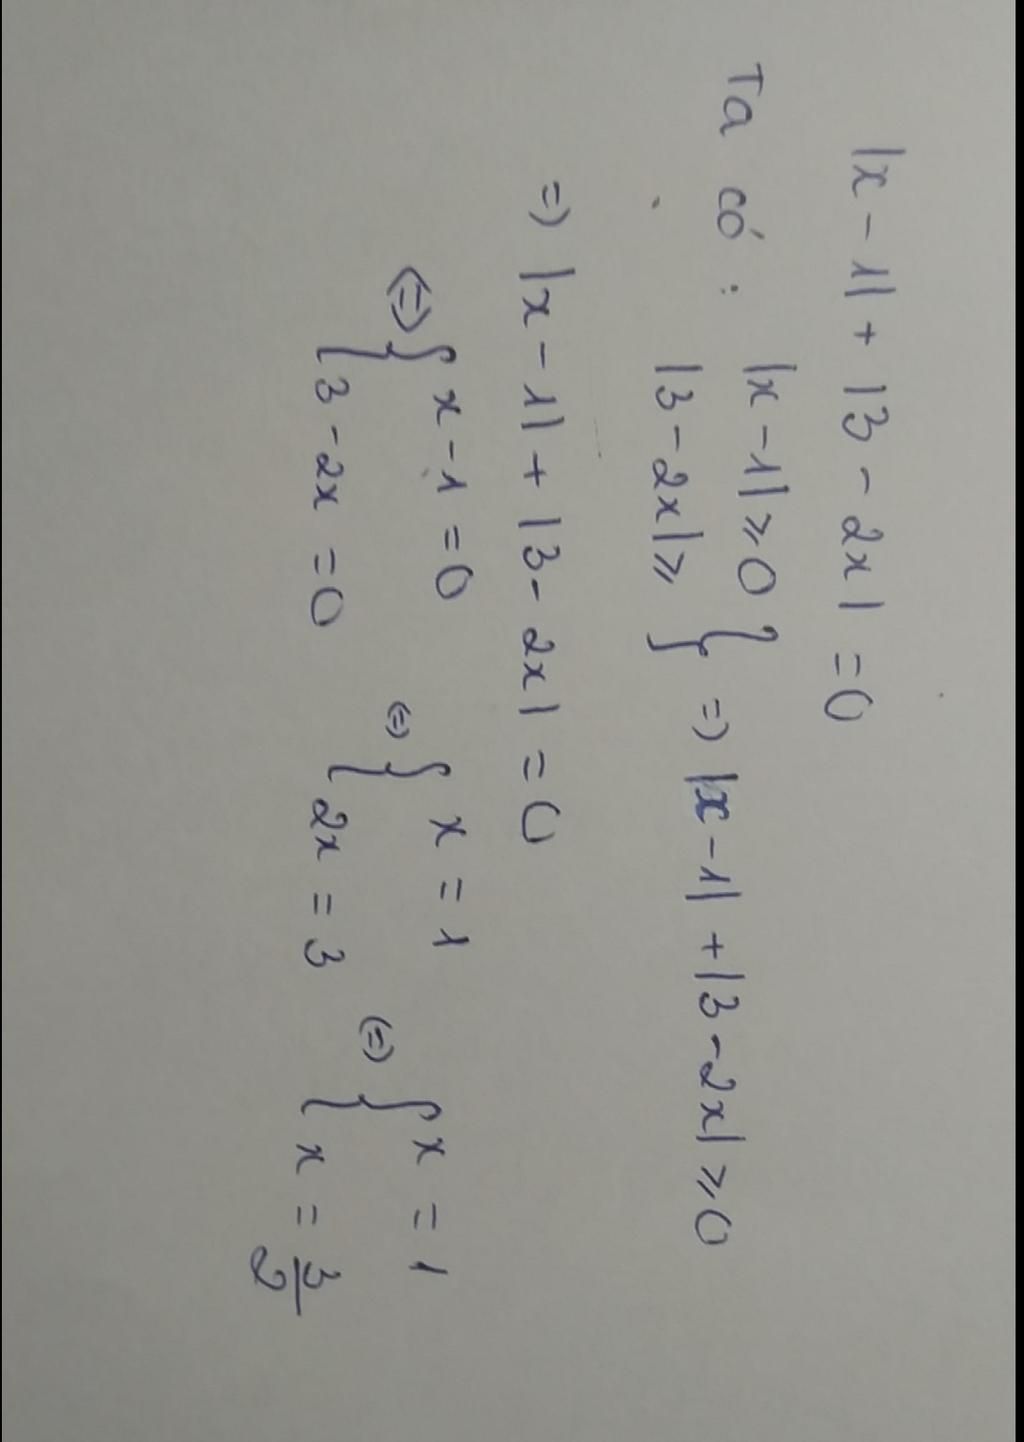 |x - 1| + |3 - 2x| = 0
Ta có : |x - 1| ≥ 0
|3 - 2x| ≥ } => |x - 1| + |3 - 2x| ≥ 0
=> |x - 1| + |3 - 2x| = 0
<=> { x - 1 = 0 <=> { x = 1 <=> { x = 1
3 - 2x = 0 2x = 3 x = 3/2